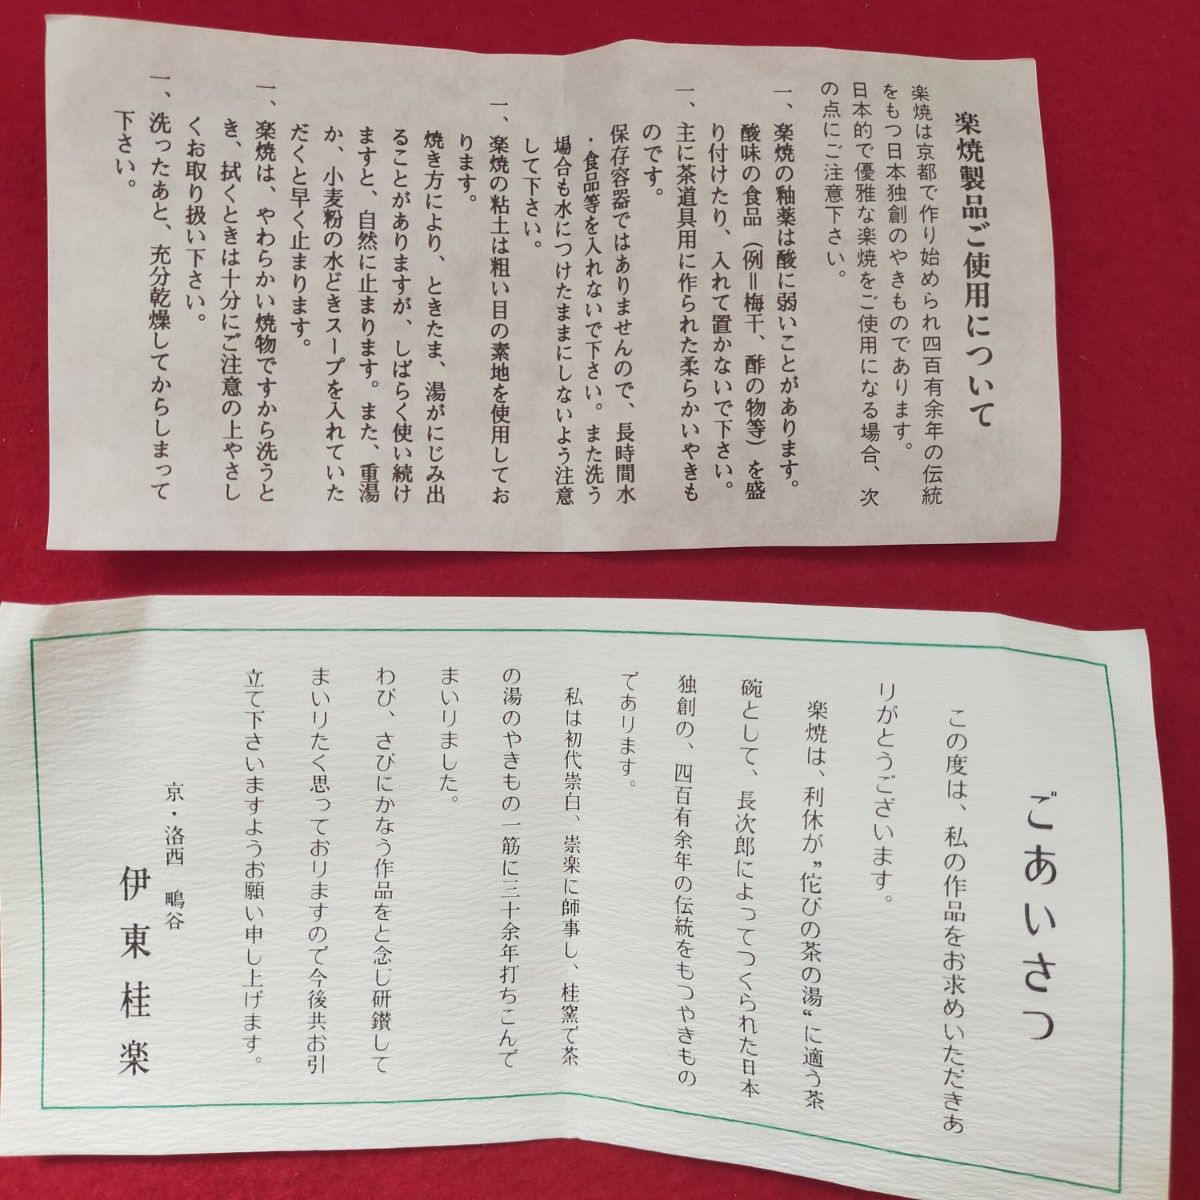 楽焼製品ご使用について
楽焼は京都で作り始められ四百有余年の伝統
をもつ日本独創のやきものであります。
日本的で優雅な楽焼をご使用になる場合、次
の点にご注意下さい。
一、楽焼の釉薬は酸に弱いことがあります。
酸味の食品（例＝梅干、酢の物等）を盛
り付けたり、入れて置かないで下さい。
一、主に茶道具用に作られた柔らかいやきも
のです。
保存容器ではありませんので、長時間水
・食品等を入れないで下さい。また洗う
場合も水につけたままにしないよう注意
して下さい。
一、楽焼の粘土は粗い目の素地を使用してお
ります。
焼き方により、ときたま、湯がにじみ出
ることがありますが、しばらく使い続け
ますと、自然に止まります。また、重湯
か、小麦粉の水どきスープを入れていた
だくと早く止まります。
一、楽焼は、やわらかい焼物ですから洗うと
き、拭くときは十分にご注意の上やさし
くお取り扱い下さい。
一、洗ったあと、充分乾燥してからしまって
下さい。
ごあいさつ
この度は、私の作品をお求めいただきあ
りがとうございます。
楽焼は、利休が〝佗びの茶の湯〟に適う茶
碗として、長次郎によってつくられた日本
独創の、四百有余年の伝統をもつやきもの
であります。
私は初代崇白、崇楽に師事し、桂窯で茶
の湯のやきもの一筋に三十余年打ちこんで
まいりました。
わび、さびにかなう作品をと念じ研鑽して
まいりたく思っておりますので今後共お引
立て下さいますようお願い申し上げます。
京・洛西 鴫谷
伊東桂楽